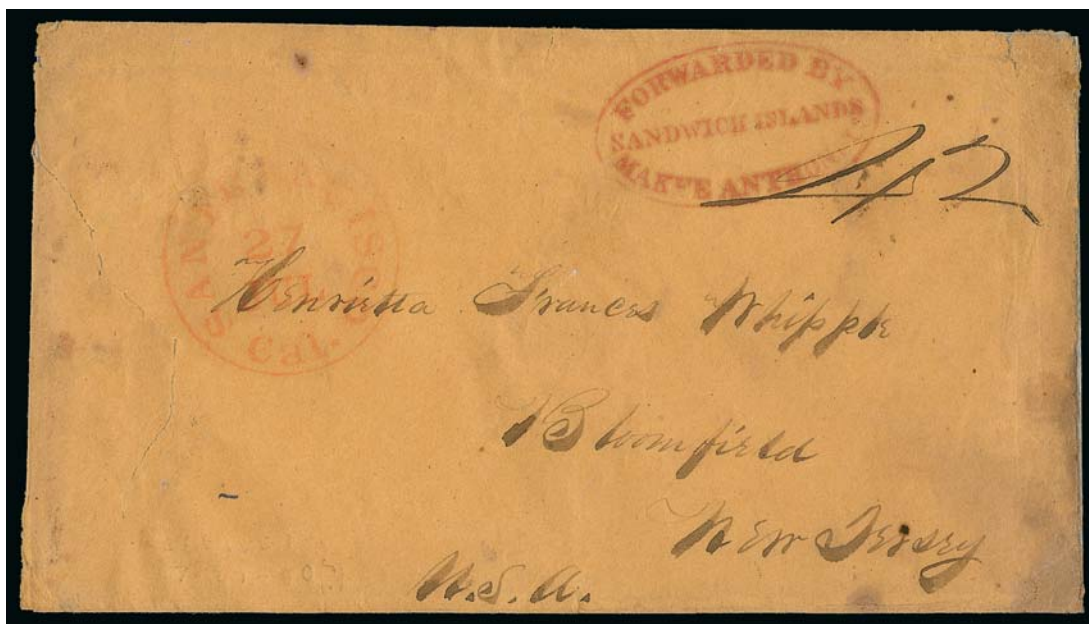 FORWARDED BY
SANDWICH ISLANDS
MAKEE ANTHON
42
SAN FRANCISCO
27
JUL
CAL.
Henrietta Frances Whipple
Bloomfield
New Jersey
U.S.A.